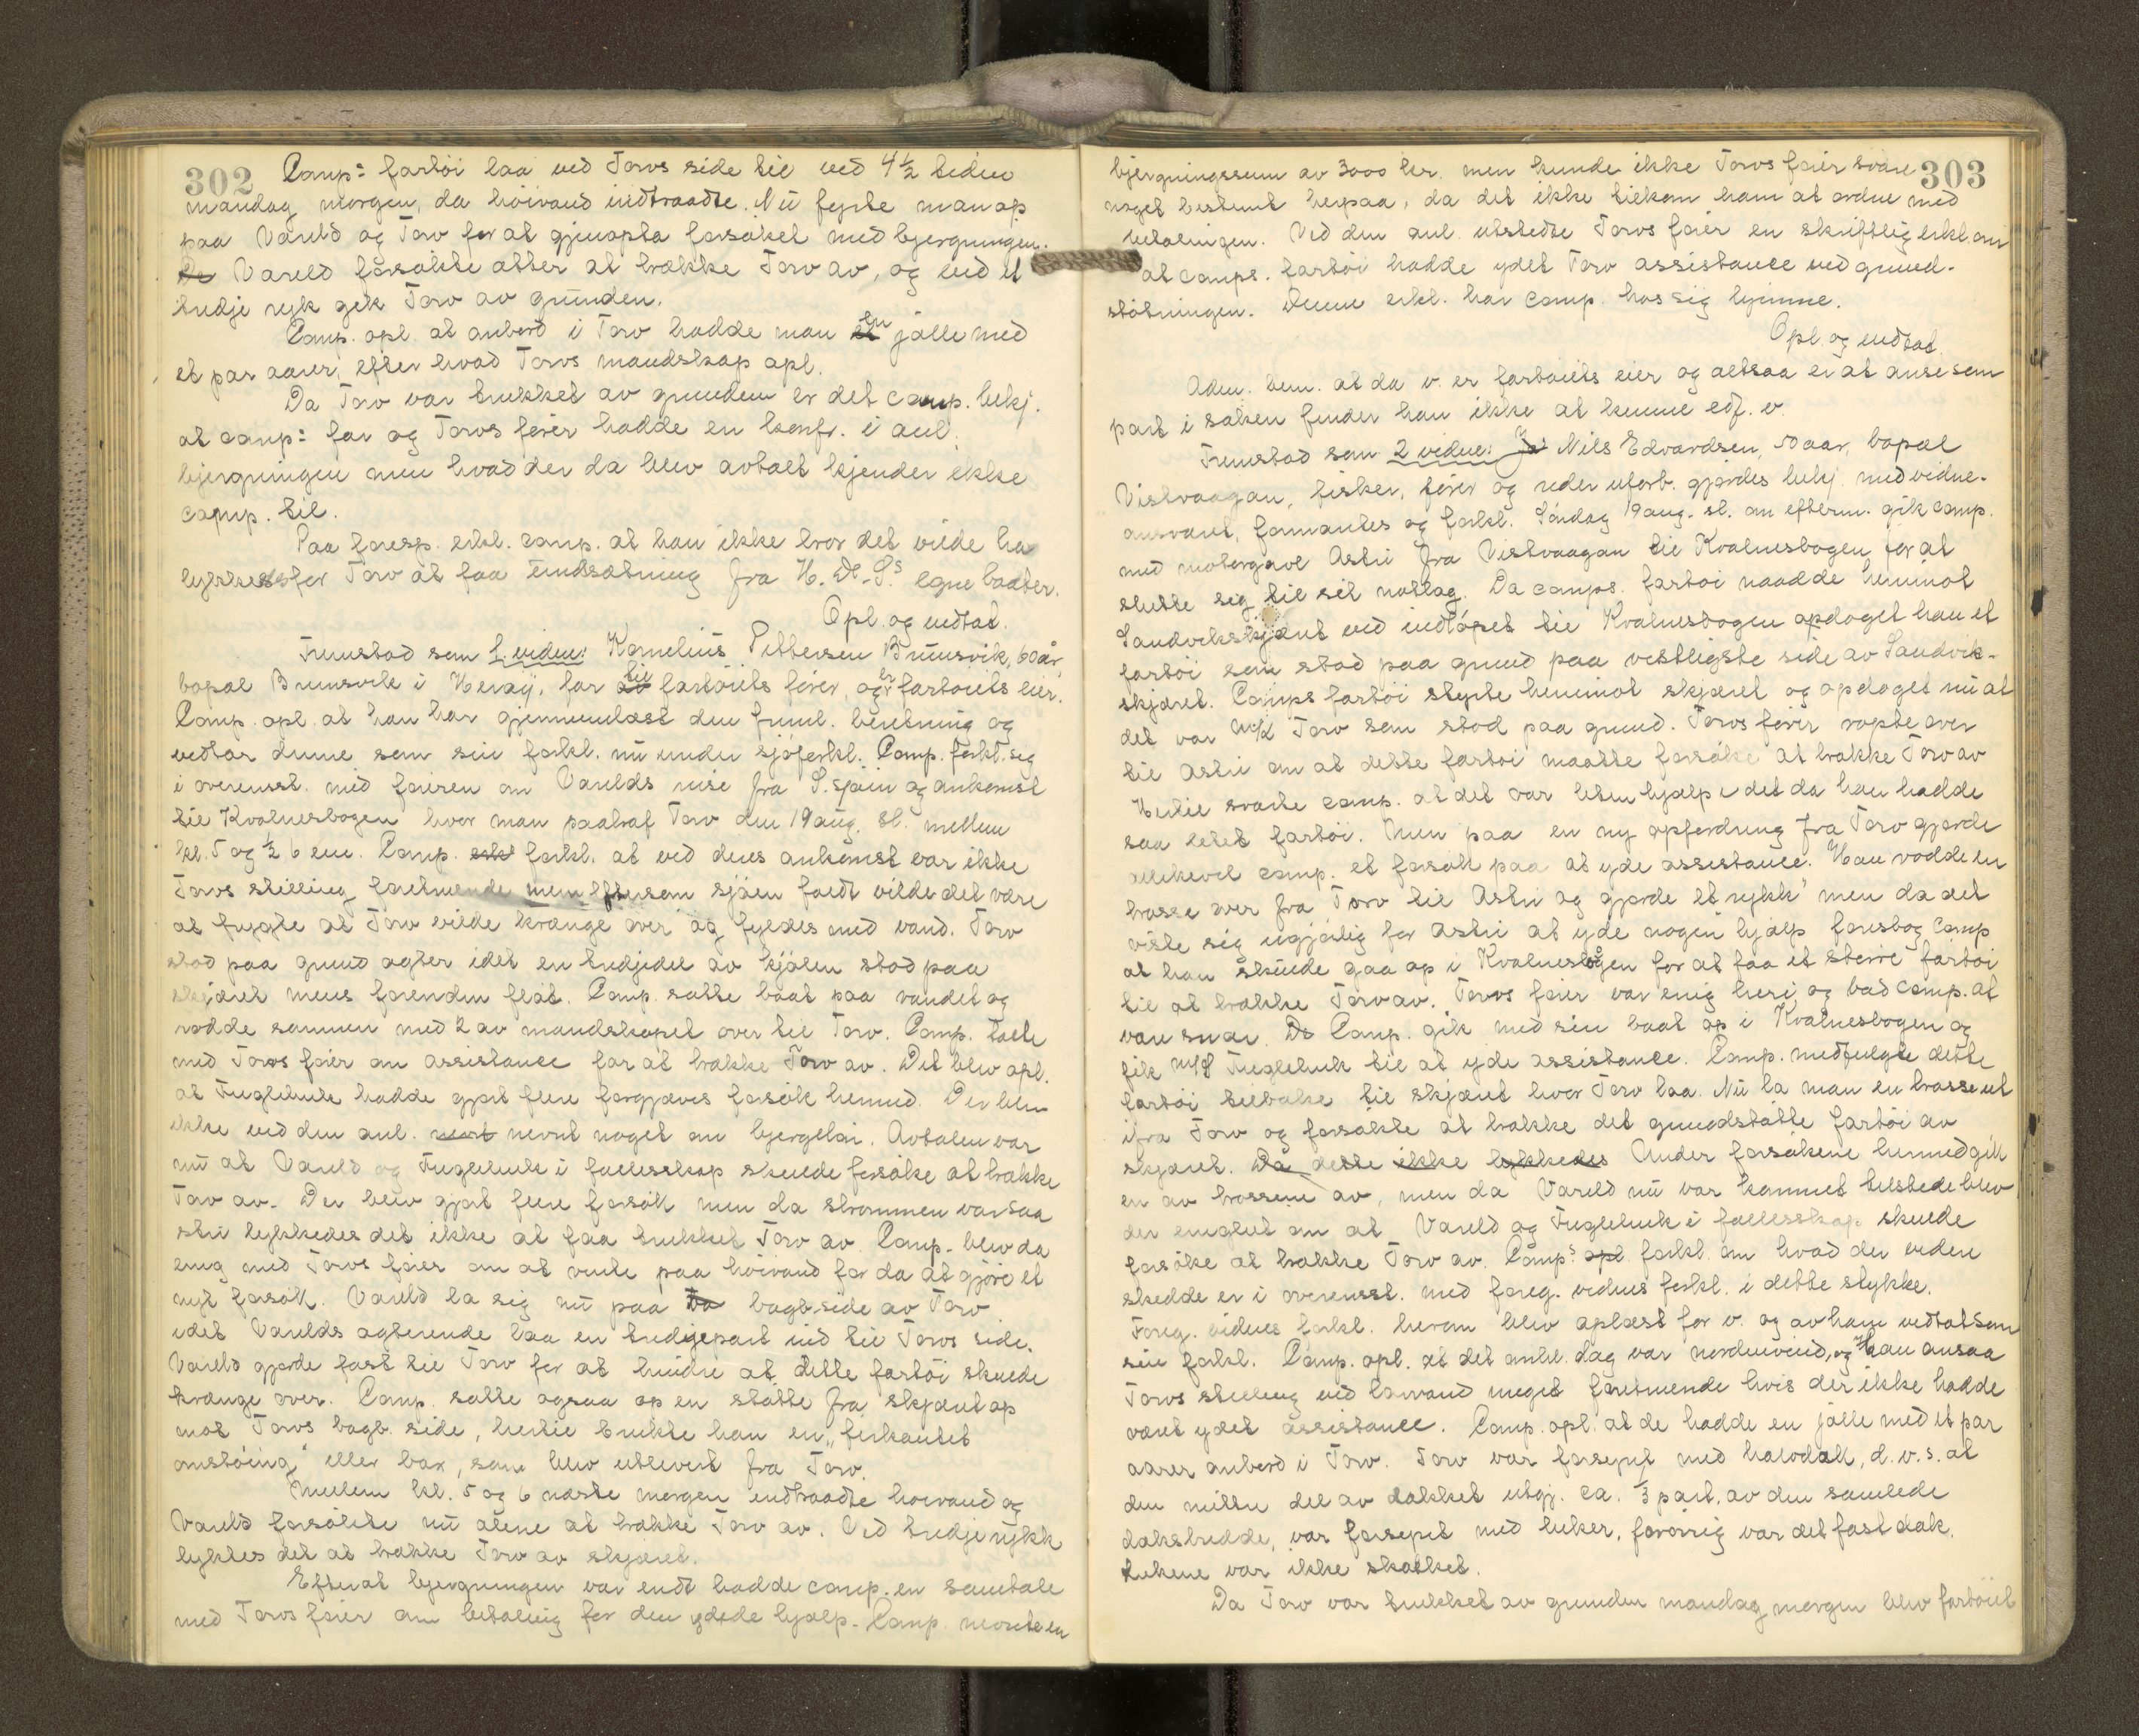 302
Comp: fartöi laa ved Torvs side til ved 4½ tiden
mandag morgen, da höivand indtraadte. Nu fyrte man op
paa Vareld og Torv for at gjenopta forsöket med bjergningen.
De Vareld försökte atter at trække Torv av, og ved et
tredje ryk gik Torv av grunden.
Comp. opl. at anbord i Torv hadde man et en jolle med
et par aarer, efter hvad Torvs mandskap opl.
Da Torv var trukket av grunden er det comp. bekj.
at comp: far og Torvs förer hadde en konfr. i anl.
bjergningen men hvad der da blev avtalt kjender ikke
comp. til.
Paa foresp. erkl. comp. at han ikke tror det vilde ha
lykkes for Torv at faa undsætning fra H. D. S.s egne baater.
Opl. og vedtat.
Fremstod som 1. vidne: Kornelius Pettersen Brunsvik, 60 år
bopæl Brunsvik i Heröy, far av til fartöiets förer, og er fartöiets eier.
Comp. opl. at han har gjennemlæst den freml. beretning og
vedtar denne som sin forkl. nu under sjöforkl. Comp. forkl. seg
i overensst. med föreren om Varelds reise fra S.sjöen og ankomst
til Kvalnesbogen hvor man paatraf Torv den 19 aug. sl. mellem
kl. 5 og ½ 6 em. Comp. erkl forkl. at ved deres ankomst var ikke
Torvs stilling faretruende men eftersom sjöen faldt vilde det være
at frygte at Torv vilde krænge over og fyldes med vand. Torv
stod paa grund agter idet en tredjedel av kjölen stod paa
skjæret mens forenden flöt. Comp. satte baat paa vandet og
rodde sammen med 2 av mandskapet over til Torv. Comp. talte
med Torvs förer om assistance for at trække Torv av. Det blev opl.
at Fuglebuk hadde gjort flere forgjæves forsök hermed. Der blev
ikke ved den anl. nevt nevnt noget om bjergelön. Avtalen var
nu at Vareld og Fuglebuk i fællesskap skulde forsöke at trække
Torv av. Der blev gjort flere forsök men da strömmen var saa
stri lykkedes det ikke at faa trukket Torv av. Comp. blev da
enig med Torvs förer om at vente paa höivand for da at gjöre et
nyt forsök. Vareld la sig nu paa To bagb.side av Torv
idet Varelds agterende laa en tredjepart ind til Torvs side.
Vareld gjorde fast til Torv for at hindre at dette fartöi skulde
krænge over. Comp. satte ogsaa op en stötte fra skjæret op
mot Torvs bagb. side, hertil brukte han en "firkantet
anstöing" eller bom, som blev utlevert fra Torv.
Mellem kl. 5 og 6 næste morgen indtraadte höivand og
Vareld forsökte nu alene at trække Torv av. Ved tredje rykk
lyktes det at trække Torv av skjæret.
Efterat bjergningen var endt hadde comp. en samtale
med Torvs förer om betaling for den ydede hjælp. Comp. nevnte en
303
bjergningssum av 3000 kr. men kunde ikke Torvs förer svare
noget bestemt herpaa, da det ikke tilkom ham at ordne med
betalingen. Ved den anl. utstedte Torvs förer en skriftlig erkl. om
at comps. fartöi hadde ydet Torv assistance ved grund-
stötningen. Denne erkl. har comp. hos sig hjemme.
Opl. og vedtat
Adm. bem. at da v. er fartöiets eier og altsaa er at anse som
part i saken finder han ikke at kunne edf. v.
Fremstod som 2 vidne: Jo Nils Edvardsen, 50 aar, bopæl
Vistvaagan, fisker, förer og reder uforb. gjordes bekj. med vidne-
ansvaret, formantes og forkl. Söndag 19 aug. sl. om efterm. gik comp.
med motorgavl Astri fra Vistvaagan til Kvalnesbogen for at
slutte sig til sit notlag. Da comps. fartöi naadde henimot
Sandvikskjæret ved indlöpet til Kvalnesbogen opdaget han et
fartöi som stod paa grund paa vestligste side av Sandvik-
skjæret. Comps fartöi styrte henimot skjæret og opdaget nu at
det var M/K Torv som stod paa grund. Torvs förer ropte over
til Astri om at dette fartöi maatte forsöke at trække Torv av
Hertil svarte comp. at det var liten hjælp i det da han hadde
saa litet fartöi. Men paa en ny opfordring fra Torv gjorde
allikevel comp. et forsök paa at yde assistance. Han rodde en
trosse over fra Torv til Astri og gjorde et rykk men da det
viste sig ugjörlig for Astri at yde nogen hjælp foreslog comp
at han skulde gaa op i Kvalnesbogen for at faa et större fartöi
til at trække Torv av. Torvs förer var enig heri og bad comp. at
være snar. De Comp. gik med sin baat op i Kvalnesbogen og
fik M/K Fuglebuk til at yde assistance. Comp. medfulgte dette
fartöi tilbake til skjæret hvor Torv laa. Nu la man en trosse ut
ifra Torv og forsökte at trække det grundstötte fartöi av
skjæret. Da dette ikke lykkedes Under forsökene hermed gik
en av trossene av, men da Vareld nu var kommet tilstede blev
der enighet om at Vareld og Fuglebuk i fællesskap skulde
forsöke at trække Torv av. Comp.s opl forkl. om hvad der videre
skedde er i overensst. med foreg. vidnes forkl. i dette stykke.
Foreg. vidnes forkl. herom blev oplæst for v. og av ham vedtat som
sin forkl. Comp. opl. at det omhl. dag var nordenvind, og Han ansaa
Torvs stilling ved lavvand meget faretruende hvis der ikke hadde
været ydet assistance. Comp. opl. at de hadde en jolle med et par
aarer anbord i Torv. Torv var forsynt med halvdæk, d.v.s. at
den mitre del av dækket utgj. ca. ⅓ part. av den samlede
dæksbredde, var forsynt med luker, forövrig var det fast dæk.
Lukene var ikke skalket.
Da Torv var trukket av grunden mandag morgen blev fartöiet